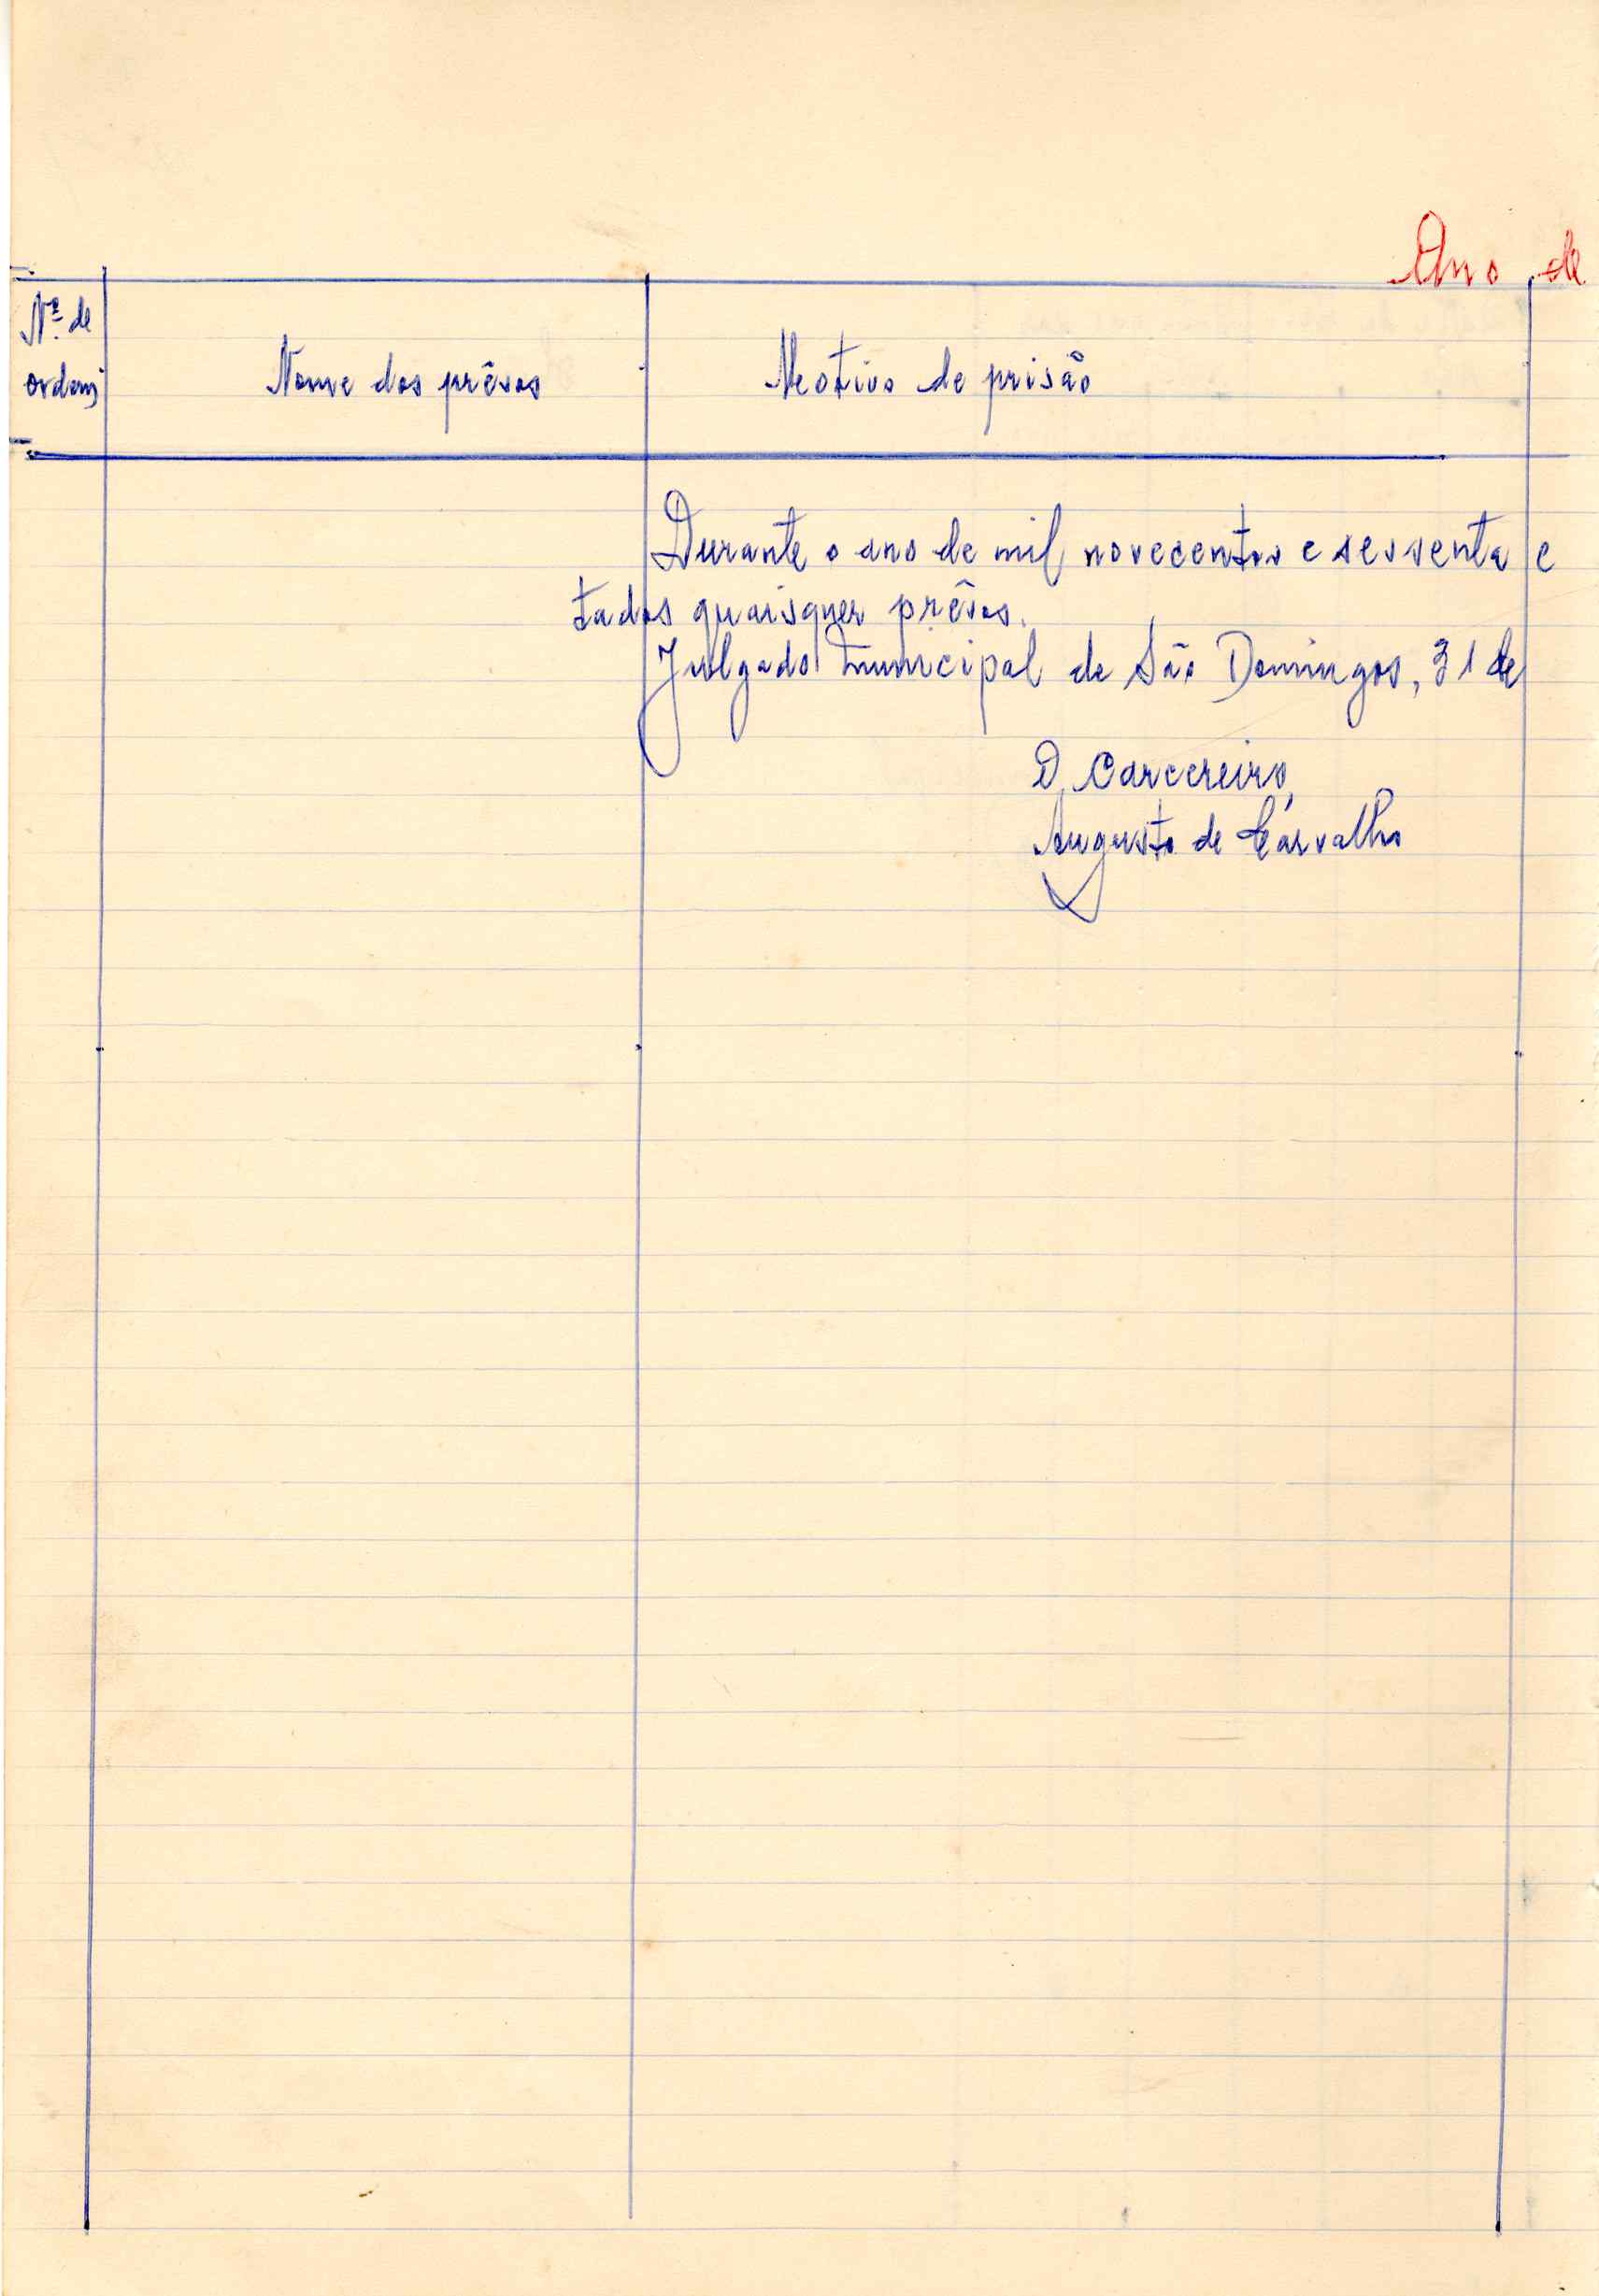 Ano de
Nº de
ordem
Nome dos prêsos
Motivo de prisão
Durante o ano de mil novecentos e sessenta e
tados quaisquer prêsos.
Julgado Municipal de São Domingos, 31 de
O Carcereiro,
Augusto de Carvalho